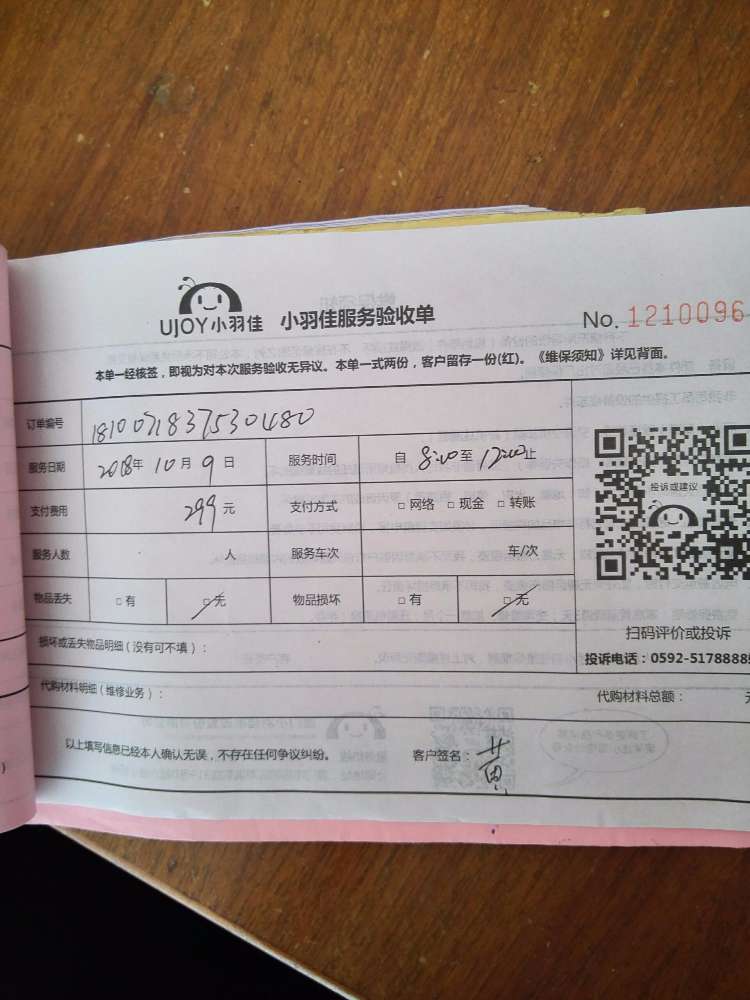 UJOY小羽佳 小羽佳服务验收单 No. 1210096
本单一经核签,即视为对本次服务验收无异议。本单一式两份,客户留存一份(红)。《维保须知》详见背面。
订单编号 1810071837530480
服务日期 2018年 10月 9日 服务时间 自 8:00至 12:00止
支付费用 299元 支付方式 □网络 □现金 □转账
服务人数 人 服务车次 车/次
物品丢失 □有 □无 物品损坏 □有 □无
投诉或建议
扫码评价或投诉
投诉电话:0592-5178885
损坏或丢失物品明细(没有可不填):
代购材料明细(维修业务): 代购材料总额:
以上填写信息已经本人确认无误,不存在任何争议纠纷。 客户签名:黄